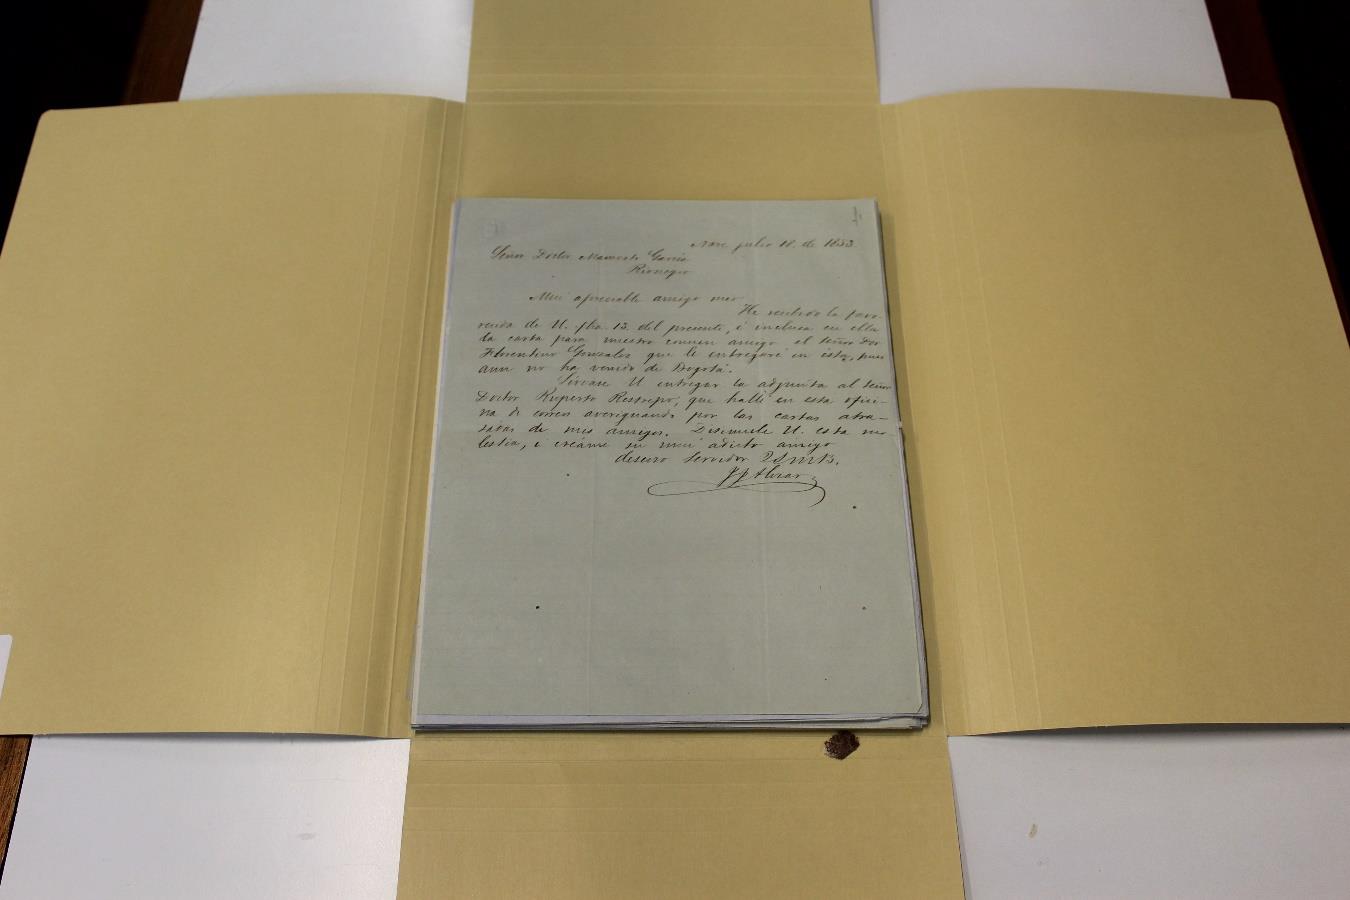 Nare julio 18. de 1853.
Señor Doctor Mamerto García
Rionegro
Mui apreciable amigo mio
He recibido la favo-
recida de U. fha. 13. del presente, i inclusa en ella
la carta para nuestro comun amigo el señor Dor
Florentino Gonzales que le entregaré en esta, pues
aun no ha venido de Bogotá.
Sirvase U entregar la adjunta al señor
Doctor Ruperto Restrepo, que hallé en esta ofici-
na de correos averiguando por las cartas atra-
sadas de mis amigos. Disimule U. esta mo-
lestia, i créame su mui adicto amigo
servidor Q S M B.